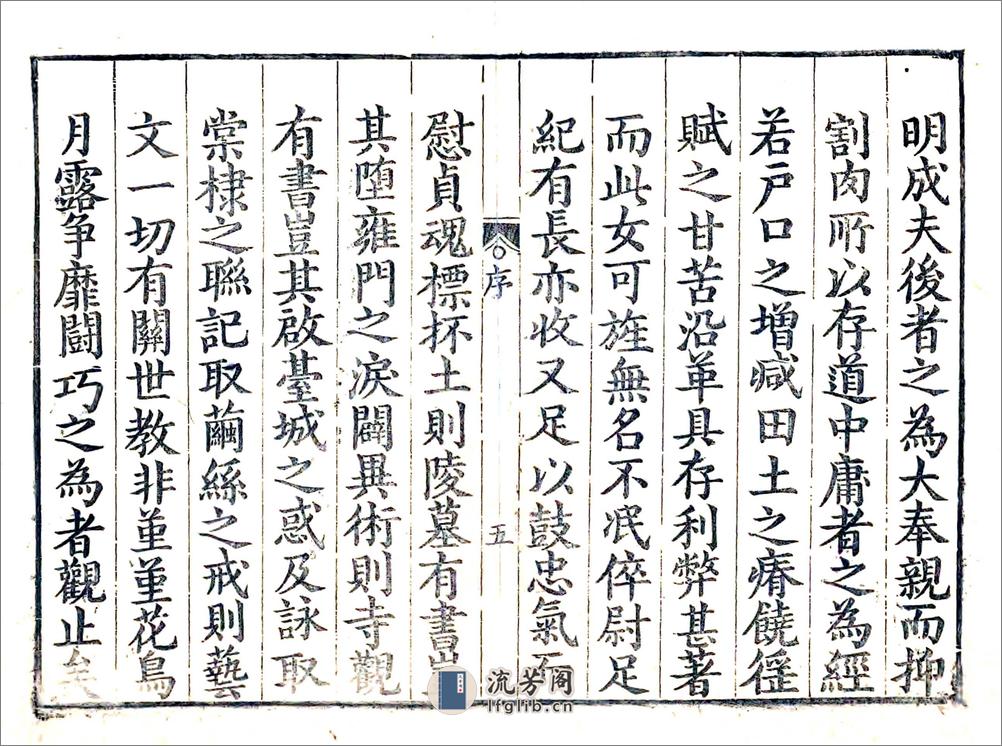 明成夫後者之為大奉親而抑
割肉所以存道中庸者之為經
若戸口之増减田土之瘠饒徭
賦之甘苦沿革具存利弊甚著
而此女可旌無名不泯倅尉足
紀有長亦收又足以鼓忠氣而
序
五
慰貞魂標抔土則陵墓有書豈
其堕雍門之淚闢異術則寺觀
有書豈其啟臺城之惑及詠取
棠棣之聯記取繭絲之戒則藝
文一切有關世教非堇堇花鳥
月露争靡鬪巧之為者觀止矣
流芳阁
lfglib.cn